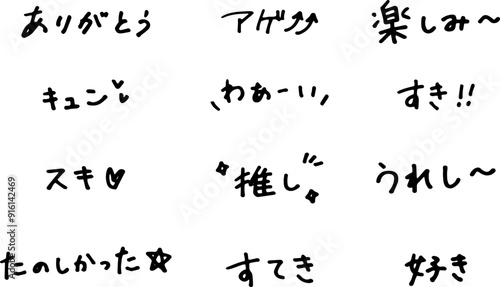 ありがとう アゲ⤴⤴ 楽しみ〜
キュン♡ わぁーい すき!!
スキ♥ 推し うれし〜
たのしかった☆ すてき 好き
Adobe Stock | #916142469